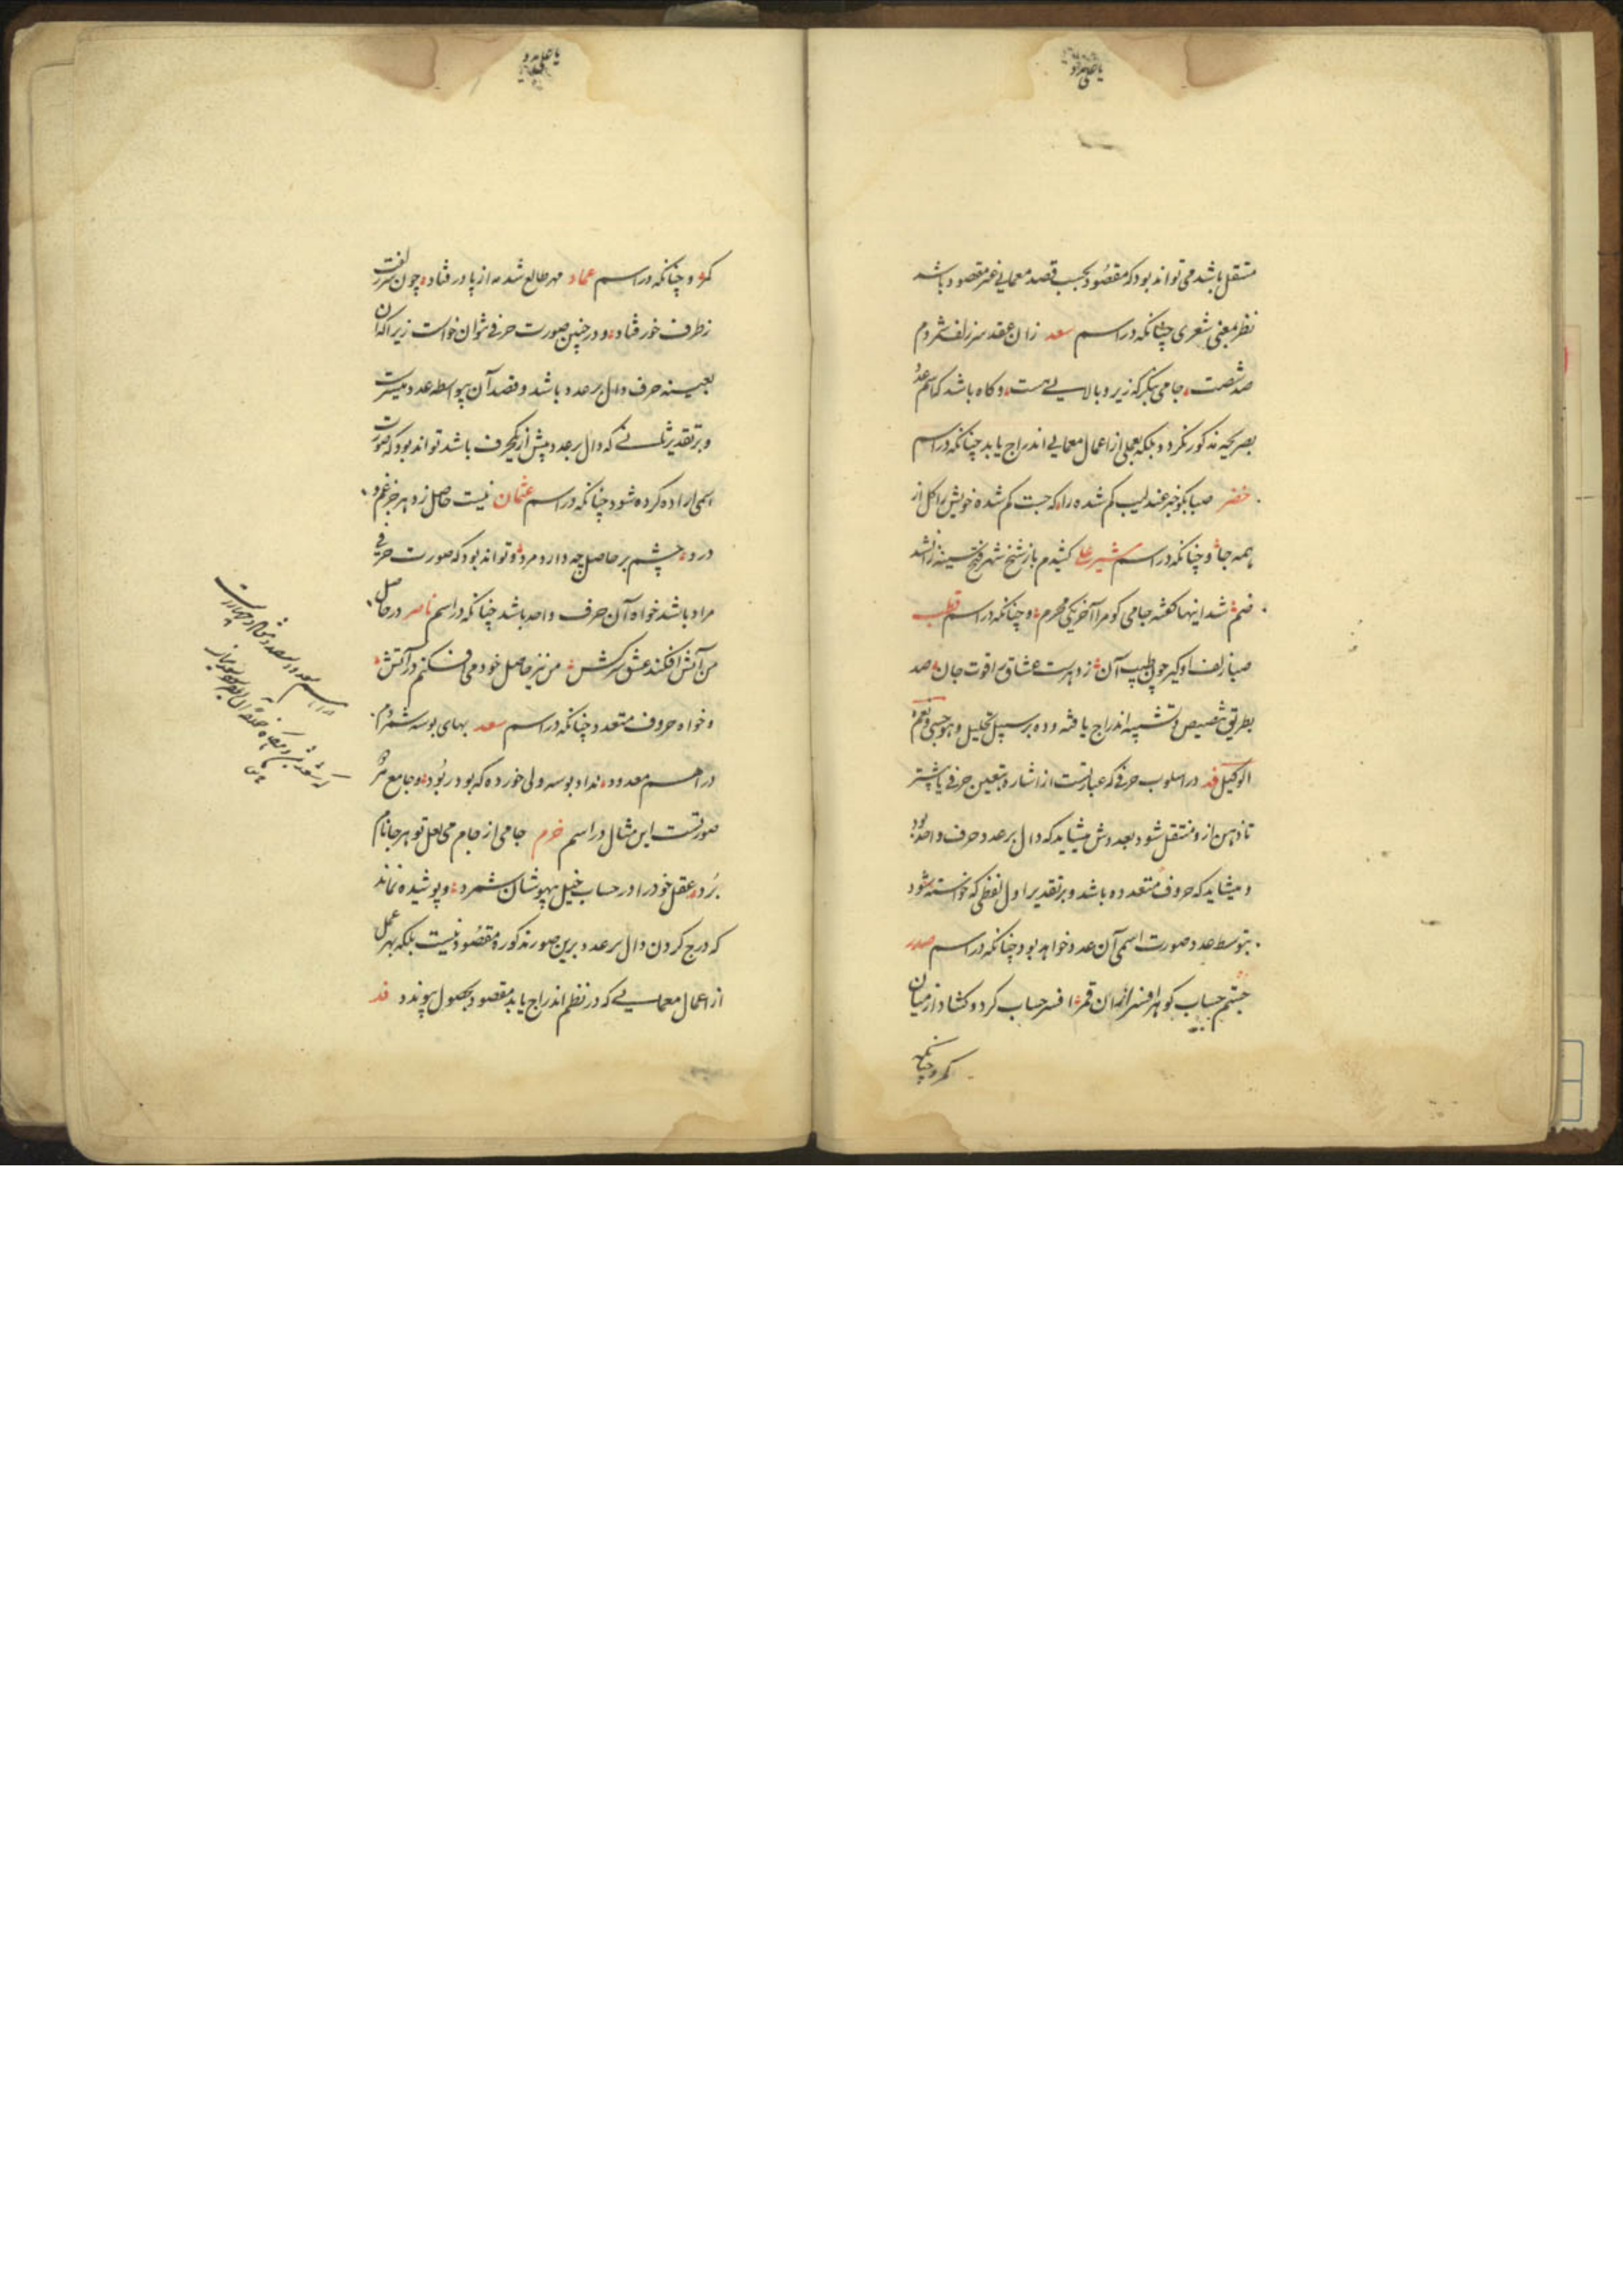 مستقل باشد می تواند بود که مقصود بحسب قصد معمایی غیر مقصود باشد
نظر بمعنی شعری چنانکه در اسم سعد زان عقد سر زلف شمردم
صد شصت جامی بنگر که زیر و بالایی هست و گاه باشد که اسم عدد
بصریحه مذکور نگردد بلکه بعملی از اعمال معمایی اندراج یابد چنانکه در اسم
خضر صبا بگو خبر عندلیب گم شده را که جست گم شده خویش را گل از
همه جا و چنانکه در اسم شیر علی کشیدم باز شیخ شهر
ضم شد اینها گفته جامی کو مرا آخر یکی محرم و چنانکه در اسم قطب
صبا زلف او گیر چون طیب آن زد هرت عشاق را قوت جان صد
بطریق تنصیص و تشبیه اندراج یافته و ده بر سبیل تحلیل و هو حسبی و نعم
الوکیل قد در اسلوب حرفی که عبارتست از اشارت بتعیین حرفی یا بیشتر
تا ذهن ازو منتقل شود بعددش میشاید که دال بر عدد حرف واحد بود
و میشاید که حروف متعدده باشد و بر تقدیر اول لفظی که خواسته شود
بتوسط عدد صورت اسمی آن عدد خواهد بود چنانکه در اسم صدر
جستم حساب کوهر افسر از آن قمر افسر حساب کرد و گشاد از میان
کمر و چنانکه
کمر و چنانکه در اسم عماد مهر طالع شد مه از پا در فتاد چون سر زلفت
ز طرف خور فتاد و در چنین صورت حرفی نتوان خواست زیرا که آن
بعینه حرف دال بر عدد باشد و قصد آن بواسطه عدد میسرست
و بر تقدیر ثانی که دال بر عدد بیش از یکحرف باشد تواند بود که صورت
اسمی اراده کرده شود چنانکه در اسم عثمان نیست حاصل ز دهر جز غم و
درد چشم بر حاصل چه دارد مرد و تواند بود که صورت حرفی
مراد باشد خواه آن حرف واحد باشد چنانکه در اسم ناصر در حاصل
من آتش افکند عشق سرکش من نیز حاصل خود می افکنم در آتش
و خواه حروف متعدد چنانکه در اسم سعد بهای بوسه شمردم
دراهم معدود نداد بوسه ولی خورده که بود ربود و جامع هر
صورتست این مثال در اسم خرم جامی از جام می لعل تو هر جا نام
برد عقل خود را در حساب خیل بیهوشان شمرد و پوشیده نماند
که درج کردن دال بر عدد برین صور مذکوره مقصود نیست بلکه بهر عمل
از اعمال معمایی که در نظم اندراج یابد مقصود بحصول پیوندد قد